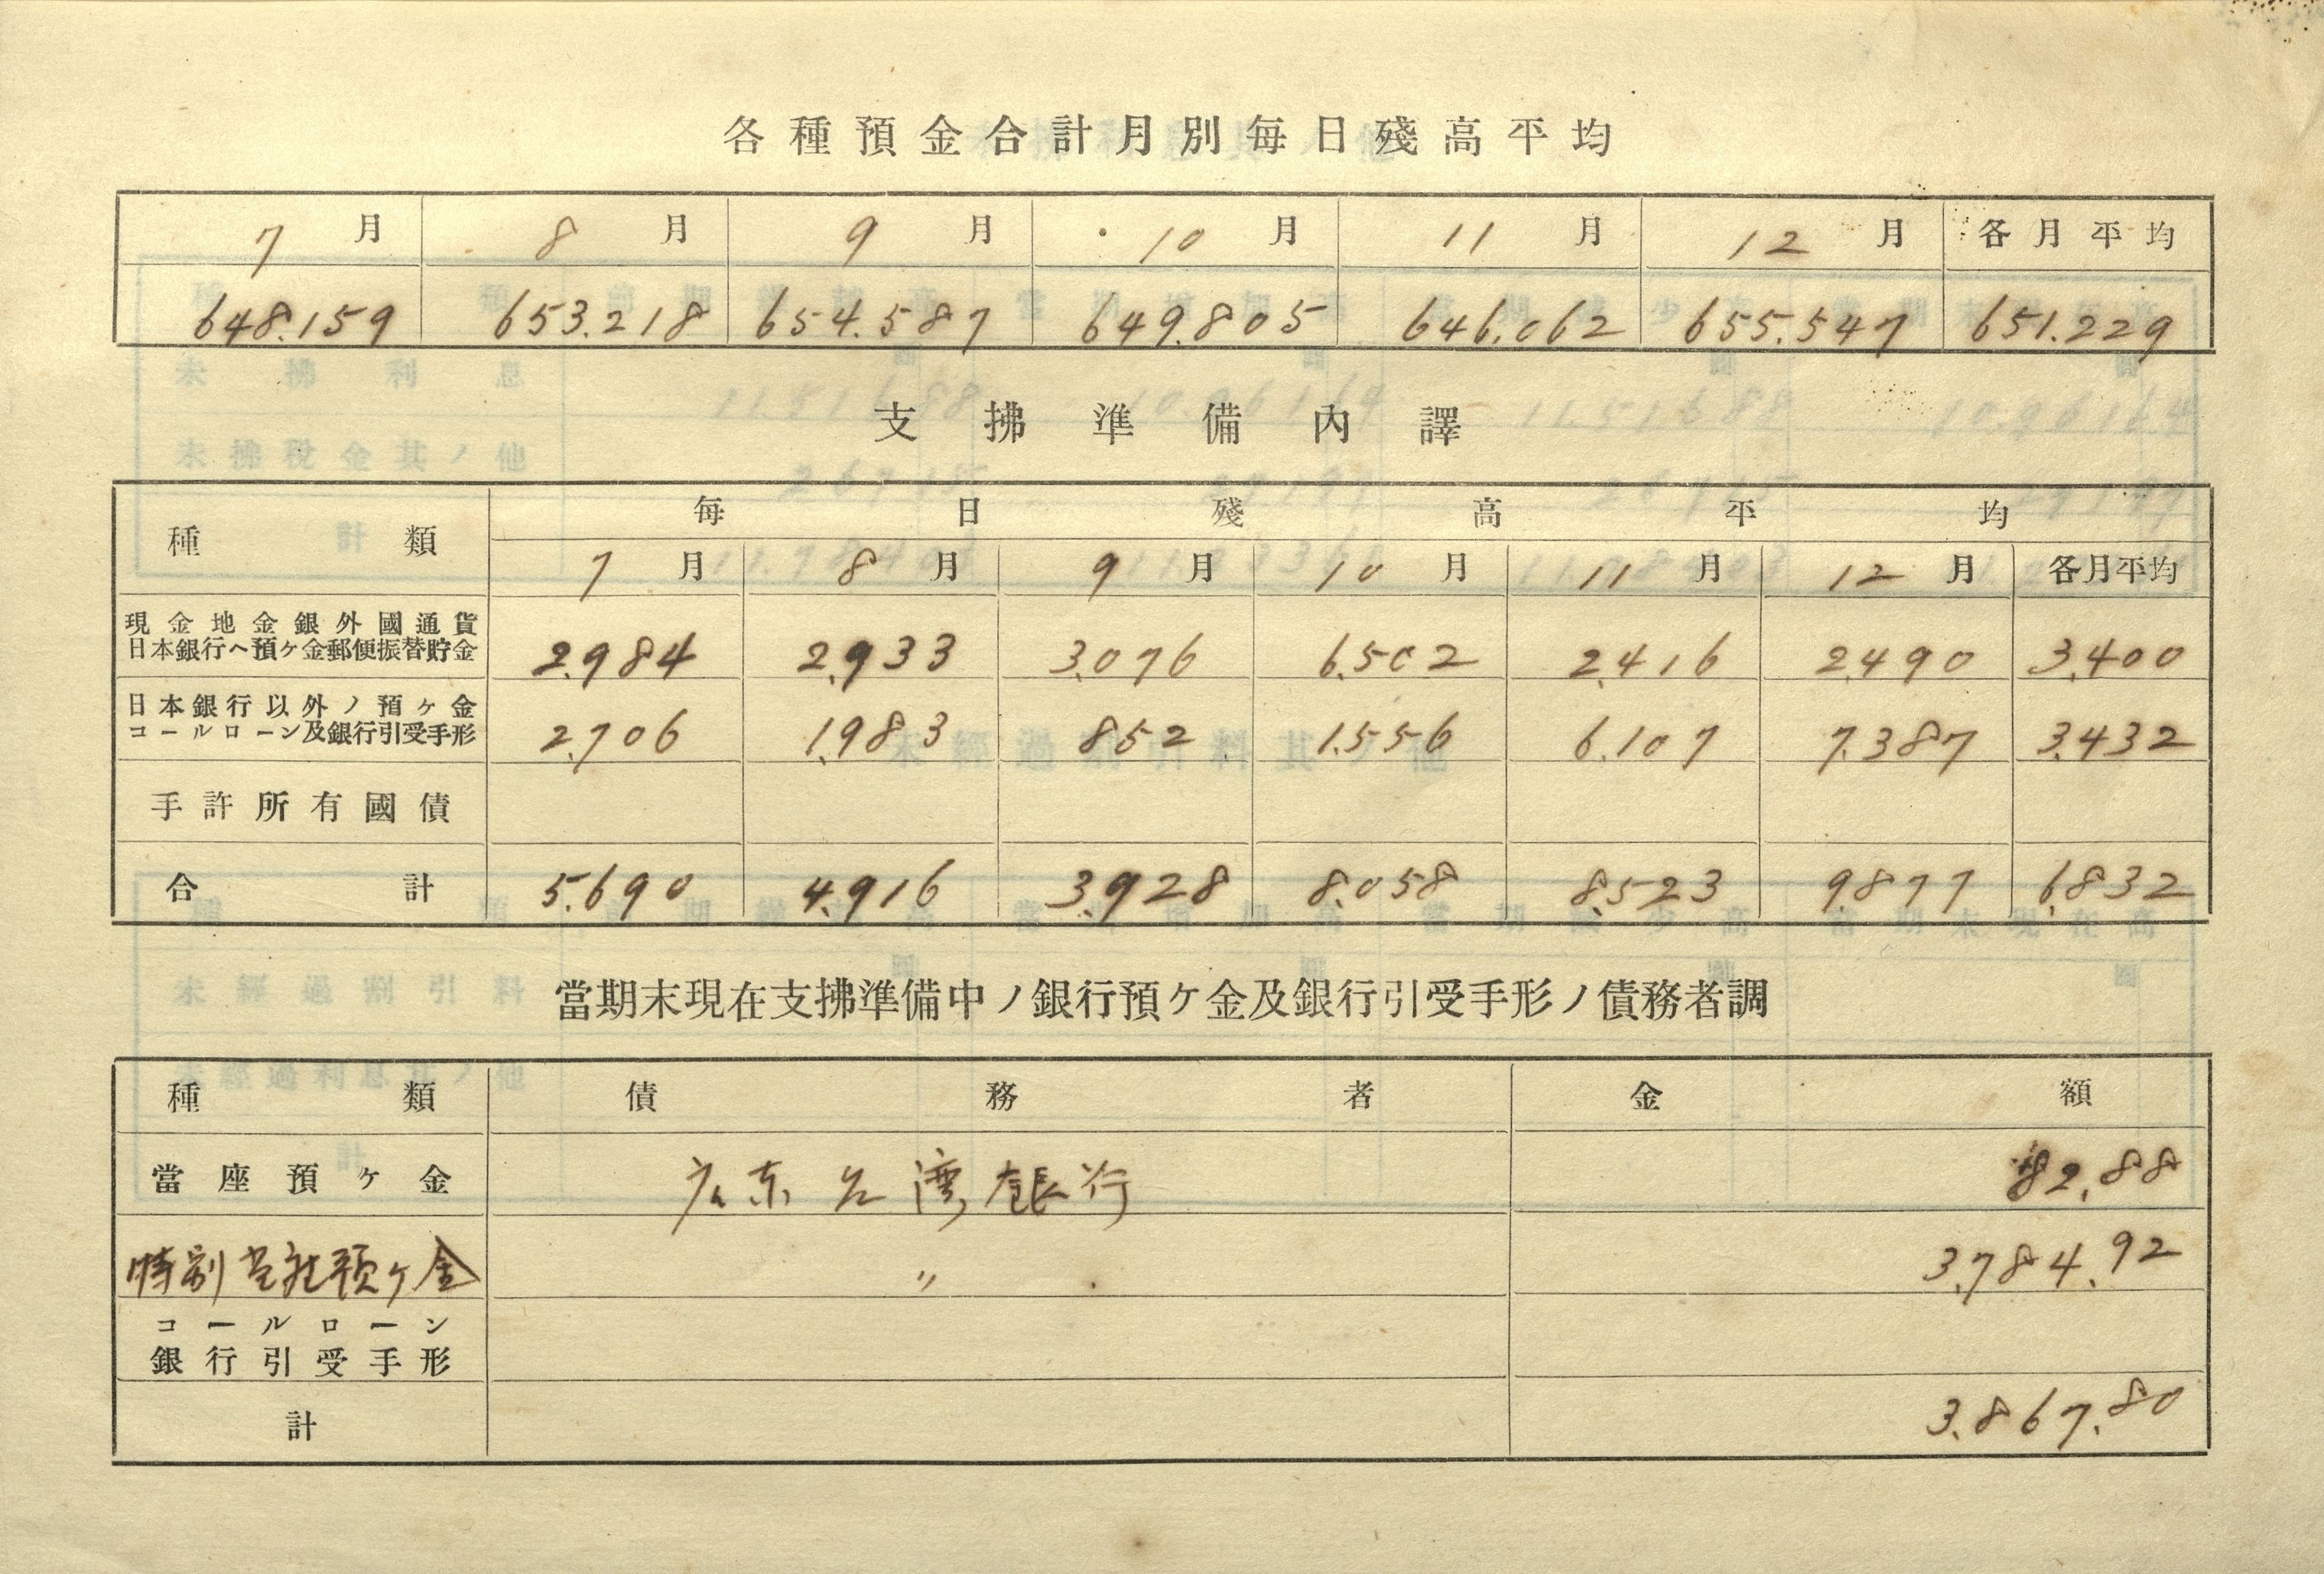 各種預金合計月別每日殘高平均
7月 8月 9月 10月 11月 12月 各月平均
648.159 653.218 654.587 649.805 646.062 655.547 651.229
支拂準備內譯
種類 每日殘高平均
7月 8月 9月 10月 11月 12月 各月平均
現金地金銀外國通貨
日本銀行ヘ預ケ金郵便振替貯金 2.984 2.933 3.076 6.502 2.416 2.490 3.400
日本銀行以外ノ預ケ金
コールローン及銀行引受手形 2.706 1.983 852 1.556 6.107 7.387 3.432
手許所有國債
合計 5.690 4.916 3.928 8.058 8.523 9.877 6.832
當期末現在支拂準備中ノ銀行預ケ金及銀行引受手形ノ債務者調
種類 債務者 金額
當座預ケ金 広东台湾銀行 82.88
特別当座預ケ金 〃 3.784.92
コールローン
銀行引受手形
計 3.867.80